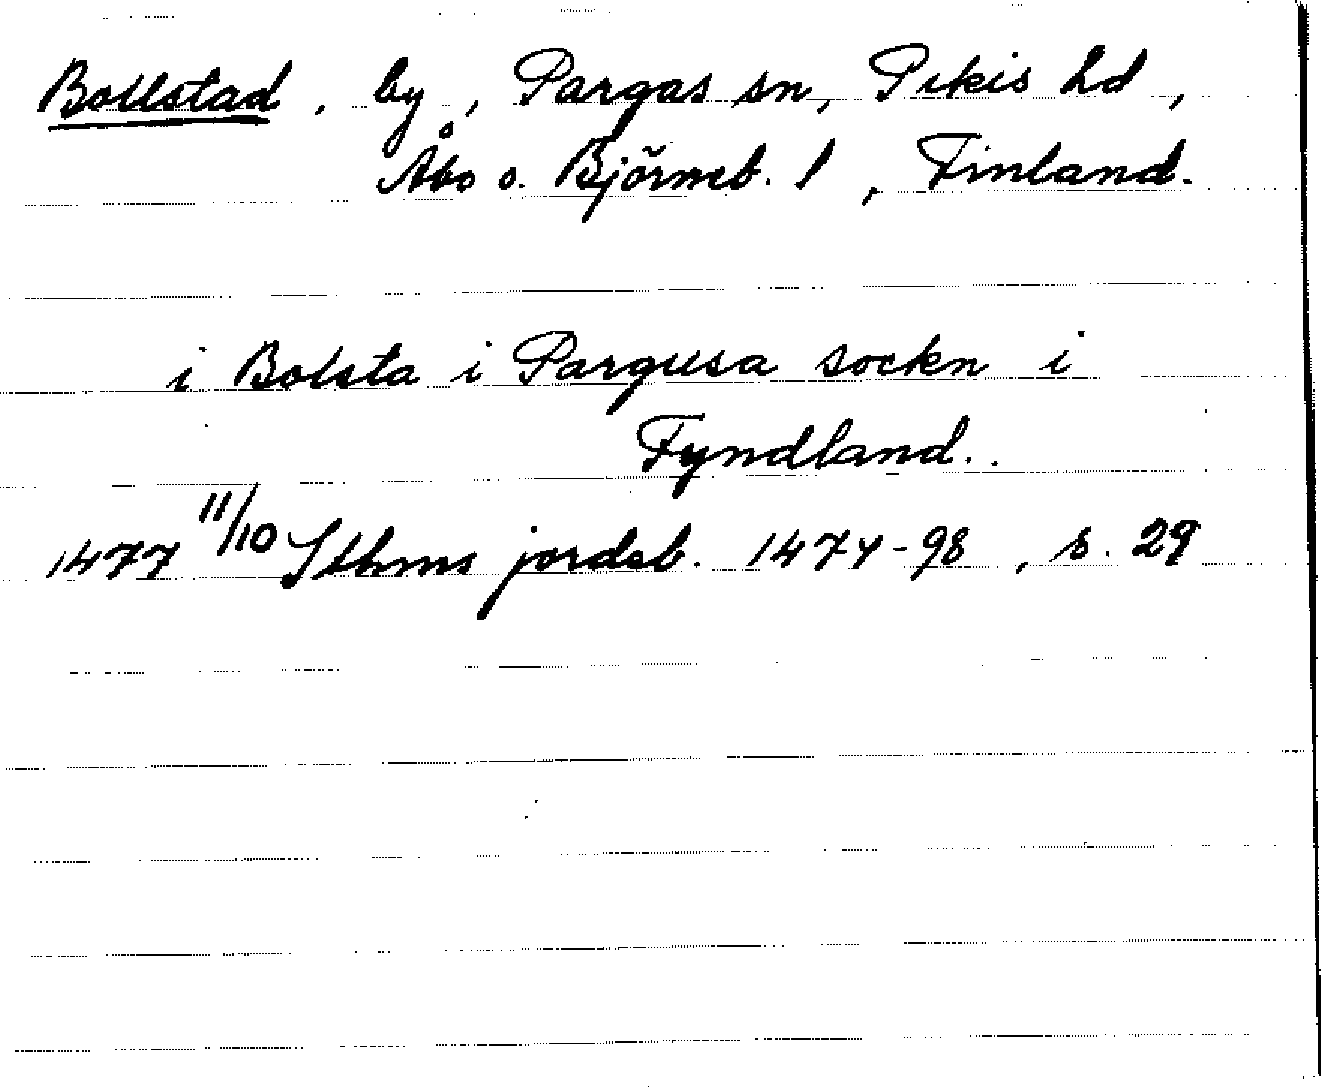 Bollstad, by, Pargas sn, Pikis hd,
Åbo o. Björneb. l, Finland.
i Bolsta i Pargusa sockn i
Fyndland..
1477 11/10 Sthms jordeb. 1474-98, s. 29